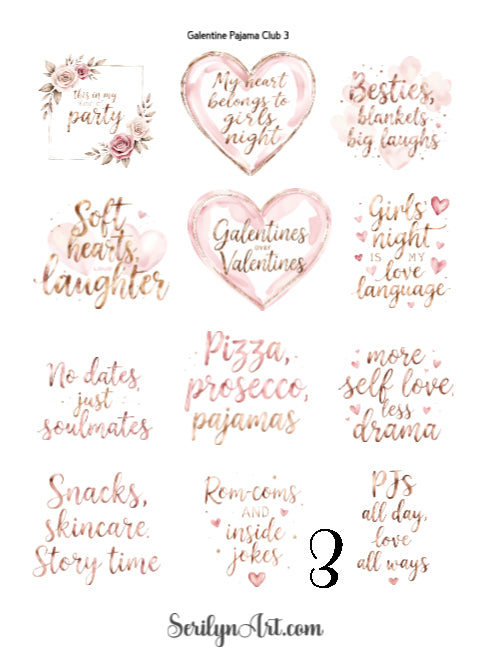 Galentine Pajama Club 3
this in my
kind of
party
My heart
belongs to
girls
night
Besties,
blankets
big laughs
Soft
hearts,
laughter
Galentines
over
Valentines
Girls'
night
IS MY
love
language
No dates,
just
soulmates
Pizza,
prosecco,
pajamas
more
self love,
less
drama
Snacks,
skincare.
Story time
Rom-coms
AND
inside
jokes
PJs
all day,
love
all ways
3
SerilynArt.com